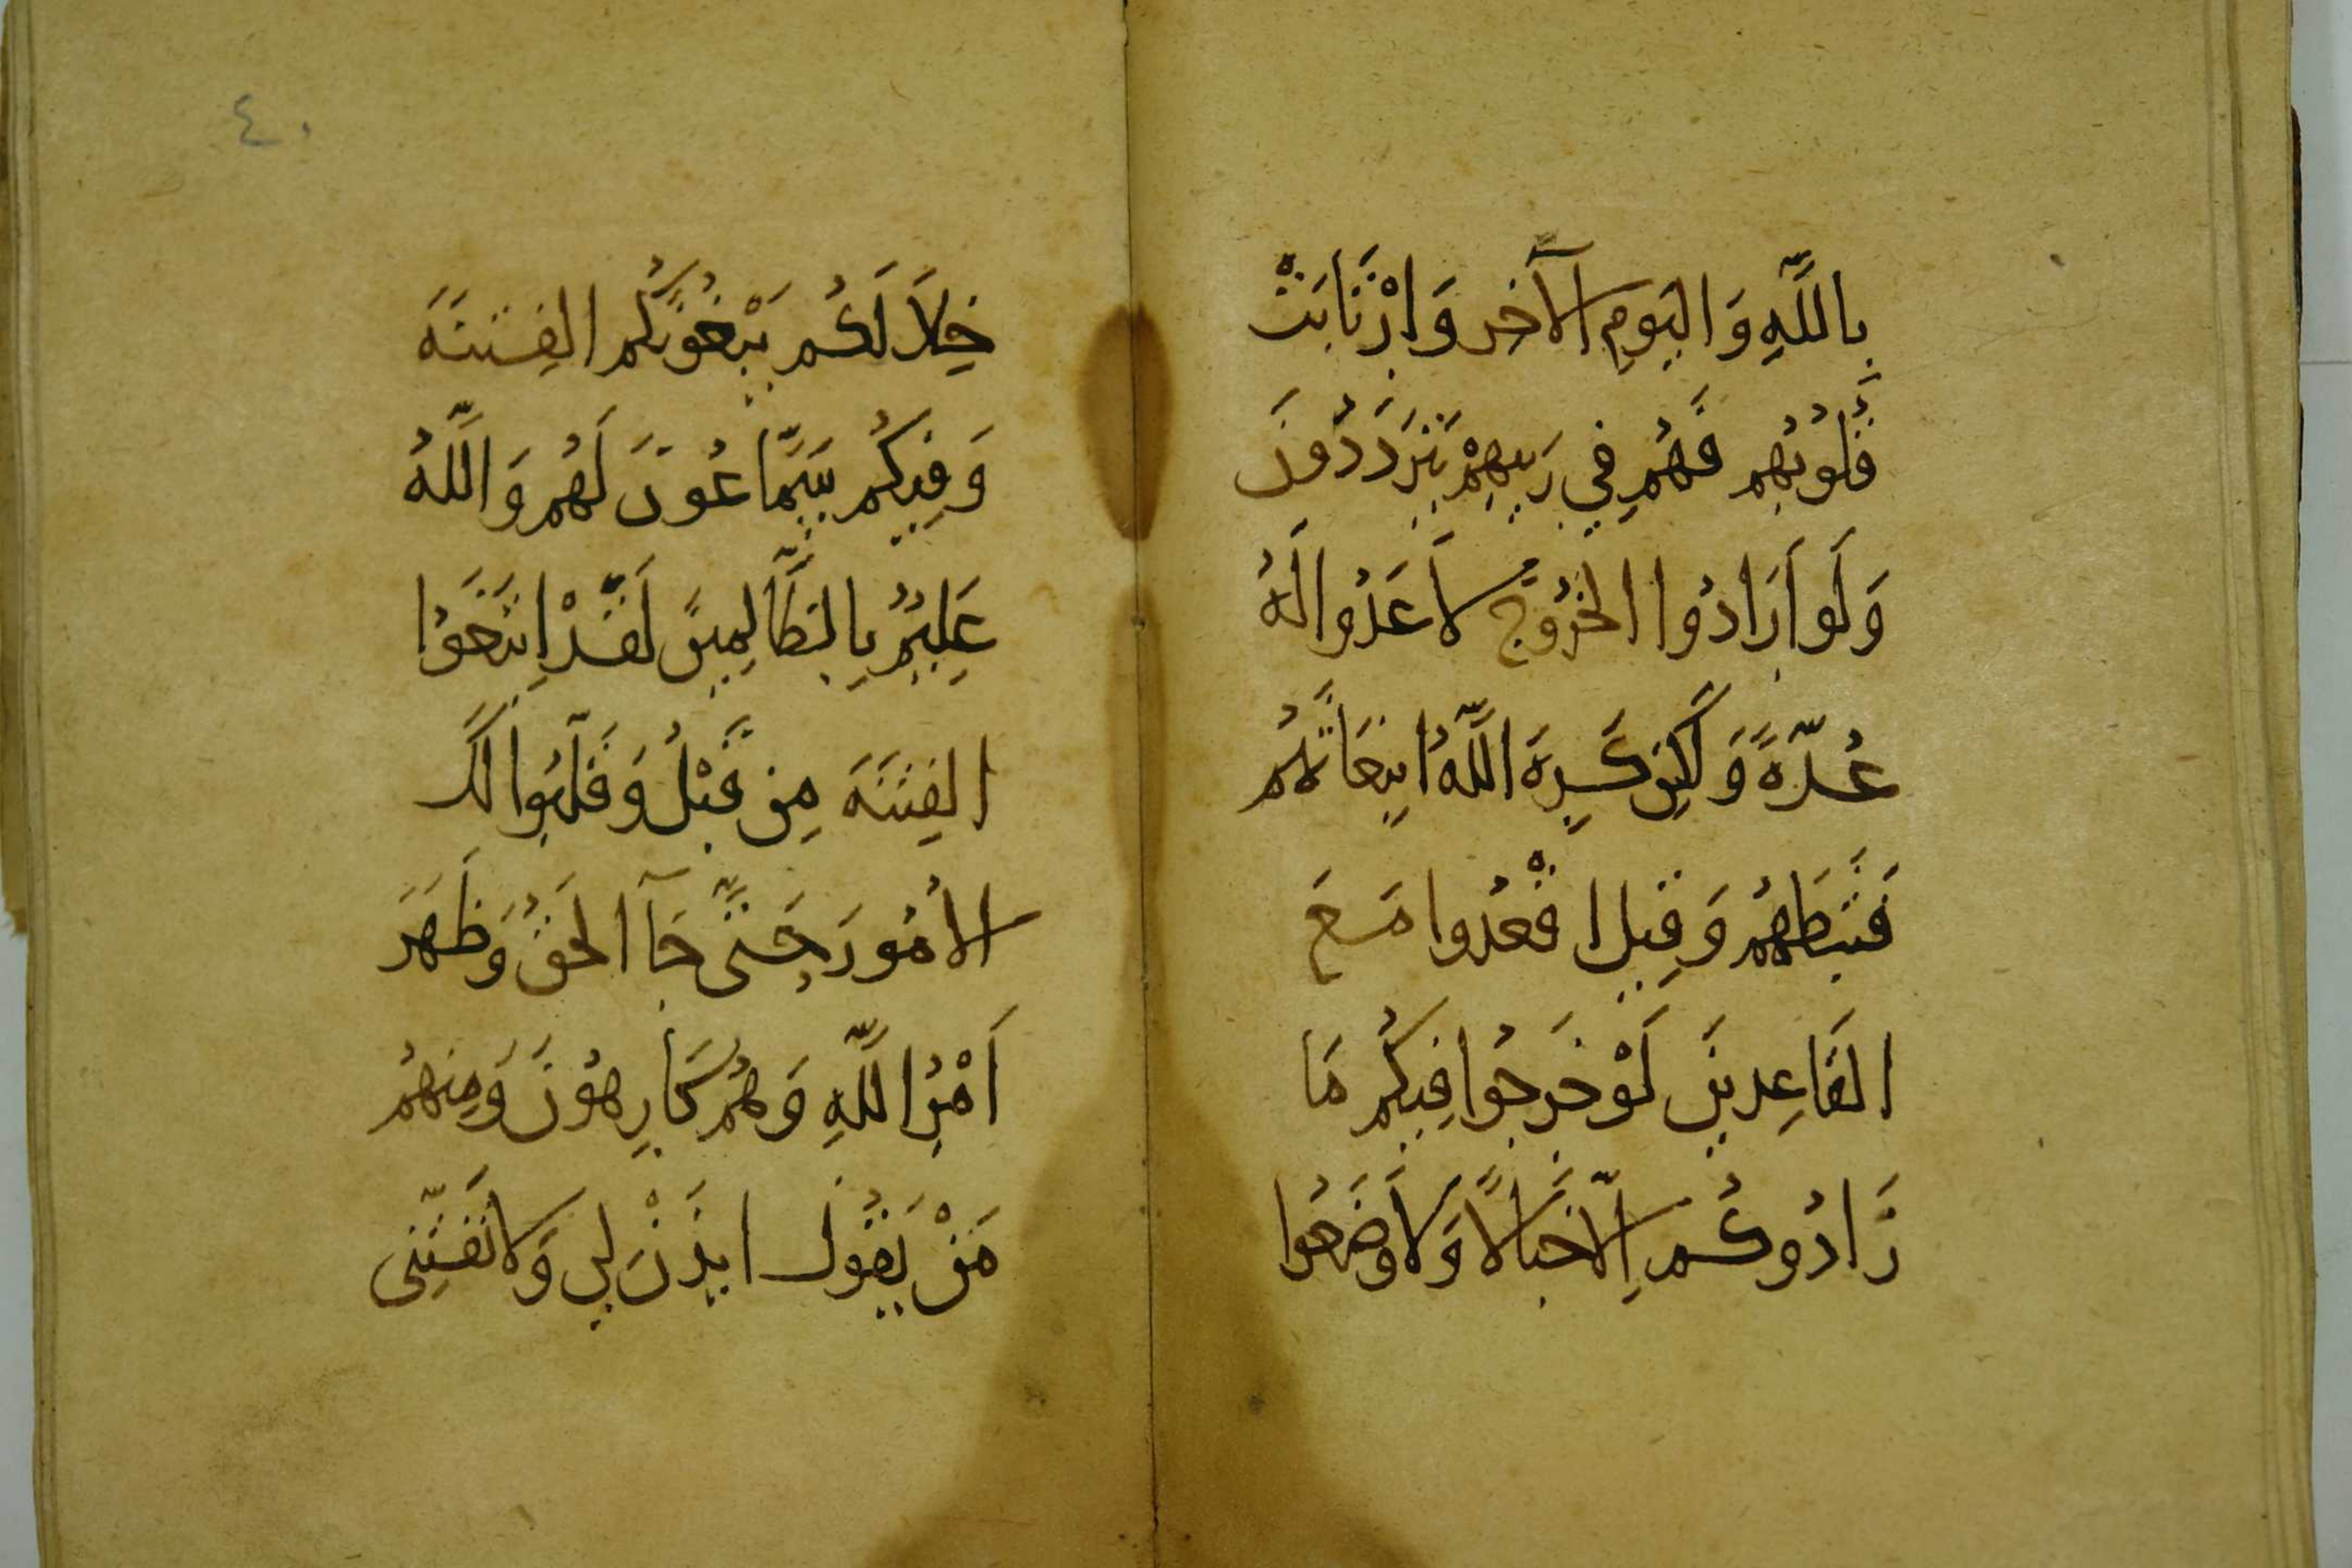 بِاللَّهِ وَاليَومِ الآخِر وَارْتَابَتْ
قُلُوبُهُم فَهُم فِي رَيبِهِمْ يَتَرَدَّدُونَ
وَلَو اَرَادُوا الخُرُوجَ لاَعَدُّوا لَهُ
عُدَّةً وَلَكِن كَرِهَ اللَّهُ انبِعَاثَهُم
فَثَبَّطَهُم وَقِيلَ اقْعُدُوا مَعَ
القَاعِدِينَ لَوْخَرَجُوا فِيكُم مَا
زَادُوكُم اِلّاخَبَالًا وَلاَوضَعُوا
٤٠
خِلاَلَكُم يَبْغُونَكُم الفِتنَةَ
وَفِيكُم سَمَّاعُونَ لَهُم وَاللَّهُ
عَلِيمٌ بِالظَّالِمِينَ لَقَدْ اِبتَغَوُا
الفِتنَةَ مِن قَبْلُ وَقَلَّبُوا لَكَ
الأمُورَ حَتَّى جَآ الحَقُّ وَظَهَرَ
اَمْرُ اللَّهِ وَهُم كَارِهُونَ وَمِنهُم
مَنْ يَقُولُ ايذَنْ لِي وَلاتَفتِنِّى